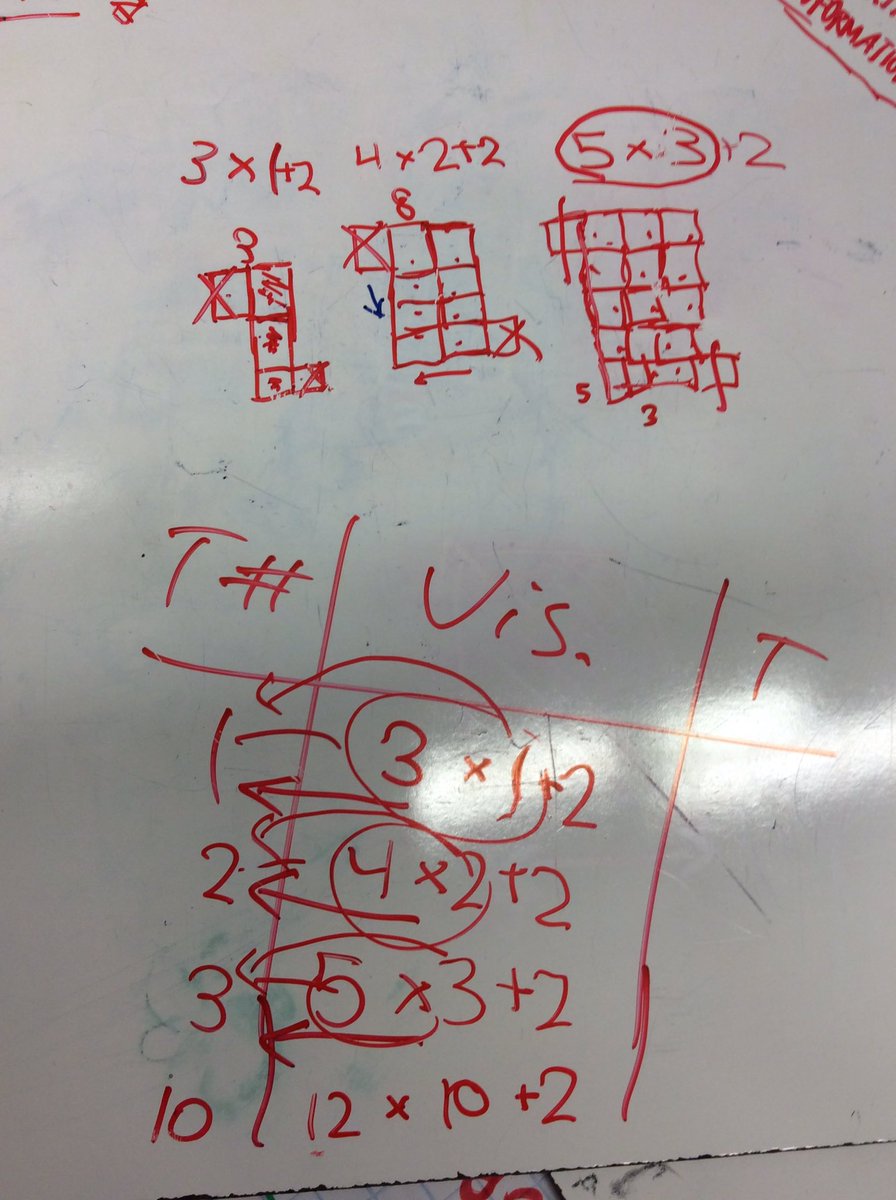 3 × 1+2 4 × 2+2 5 × 3 +2
3 8
5
3
T # Vis. T
1 3 × 1+2
2 4 × 2+2
3 5 × 3+2
10 12 × 10 +2